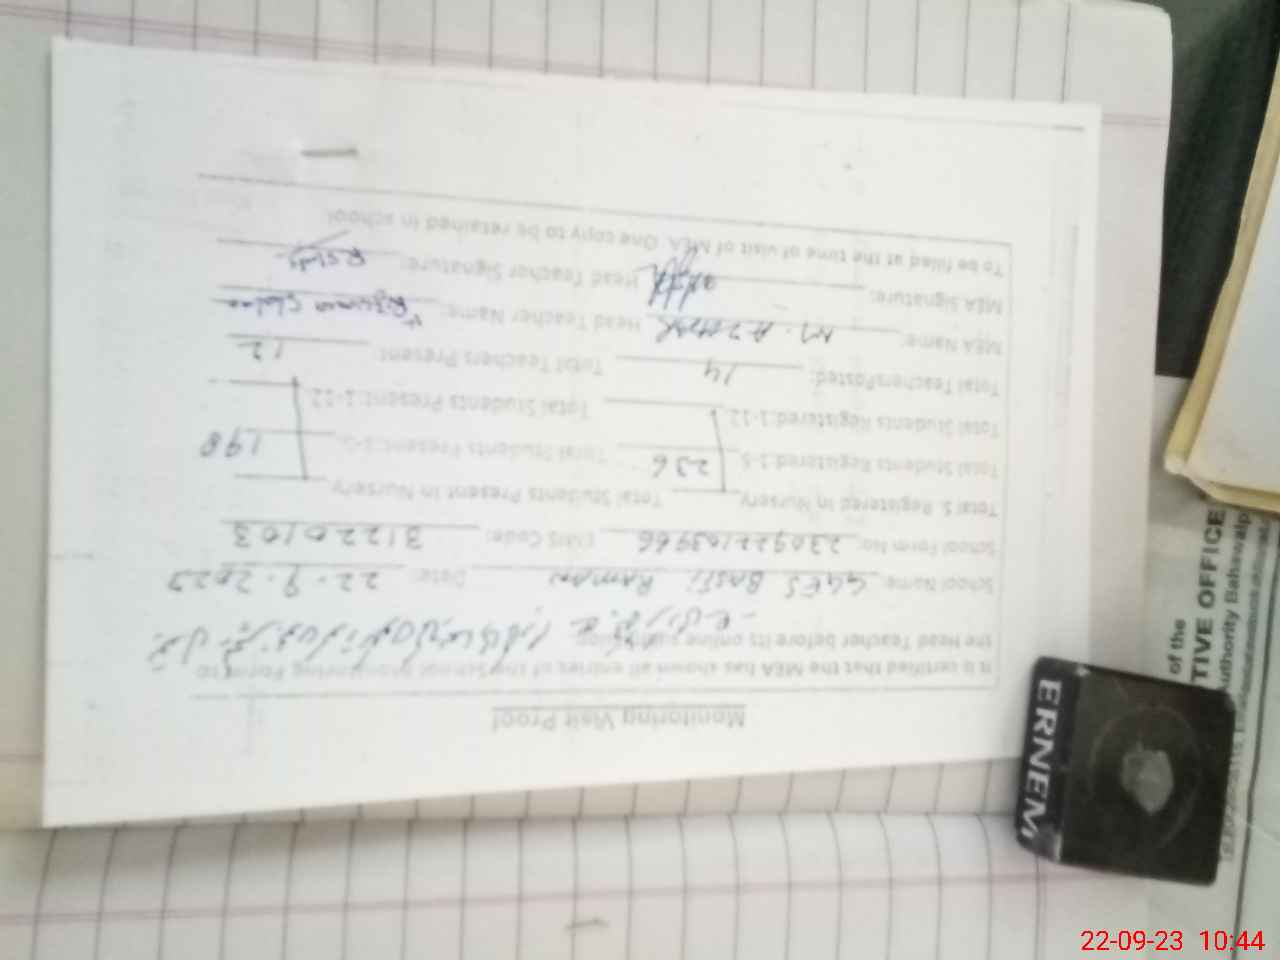 Monitoring Visit Proof
It is certified that the MEA has shown all entries of the School Monitoring Form to
the Head Teacher before its online submission
School Name: GGES BASTI RAMAN Date: 22.9.2023
School Form No: 23092203966 EMIS Code: 31220103
Total S. Registered in Nursery Total Students Present in Nursery
Total Students Registered:1-5 236 Total Students Present:1-5 198
Total Students Registered:1-12 Total Students Present:1-12
Total TeachersPosted: 14 Total Teachers Present: 12
MEA Name: M. AZHAR Head Teacher Name:
MEA Signature: Head Teacher Signature:
To be filled at the time of visit of MEA. One copy to be retained in school
of the
TIVE OFFICE
uthority Bahawalp
ERNEM
22-09-23 10:44